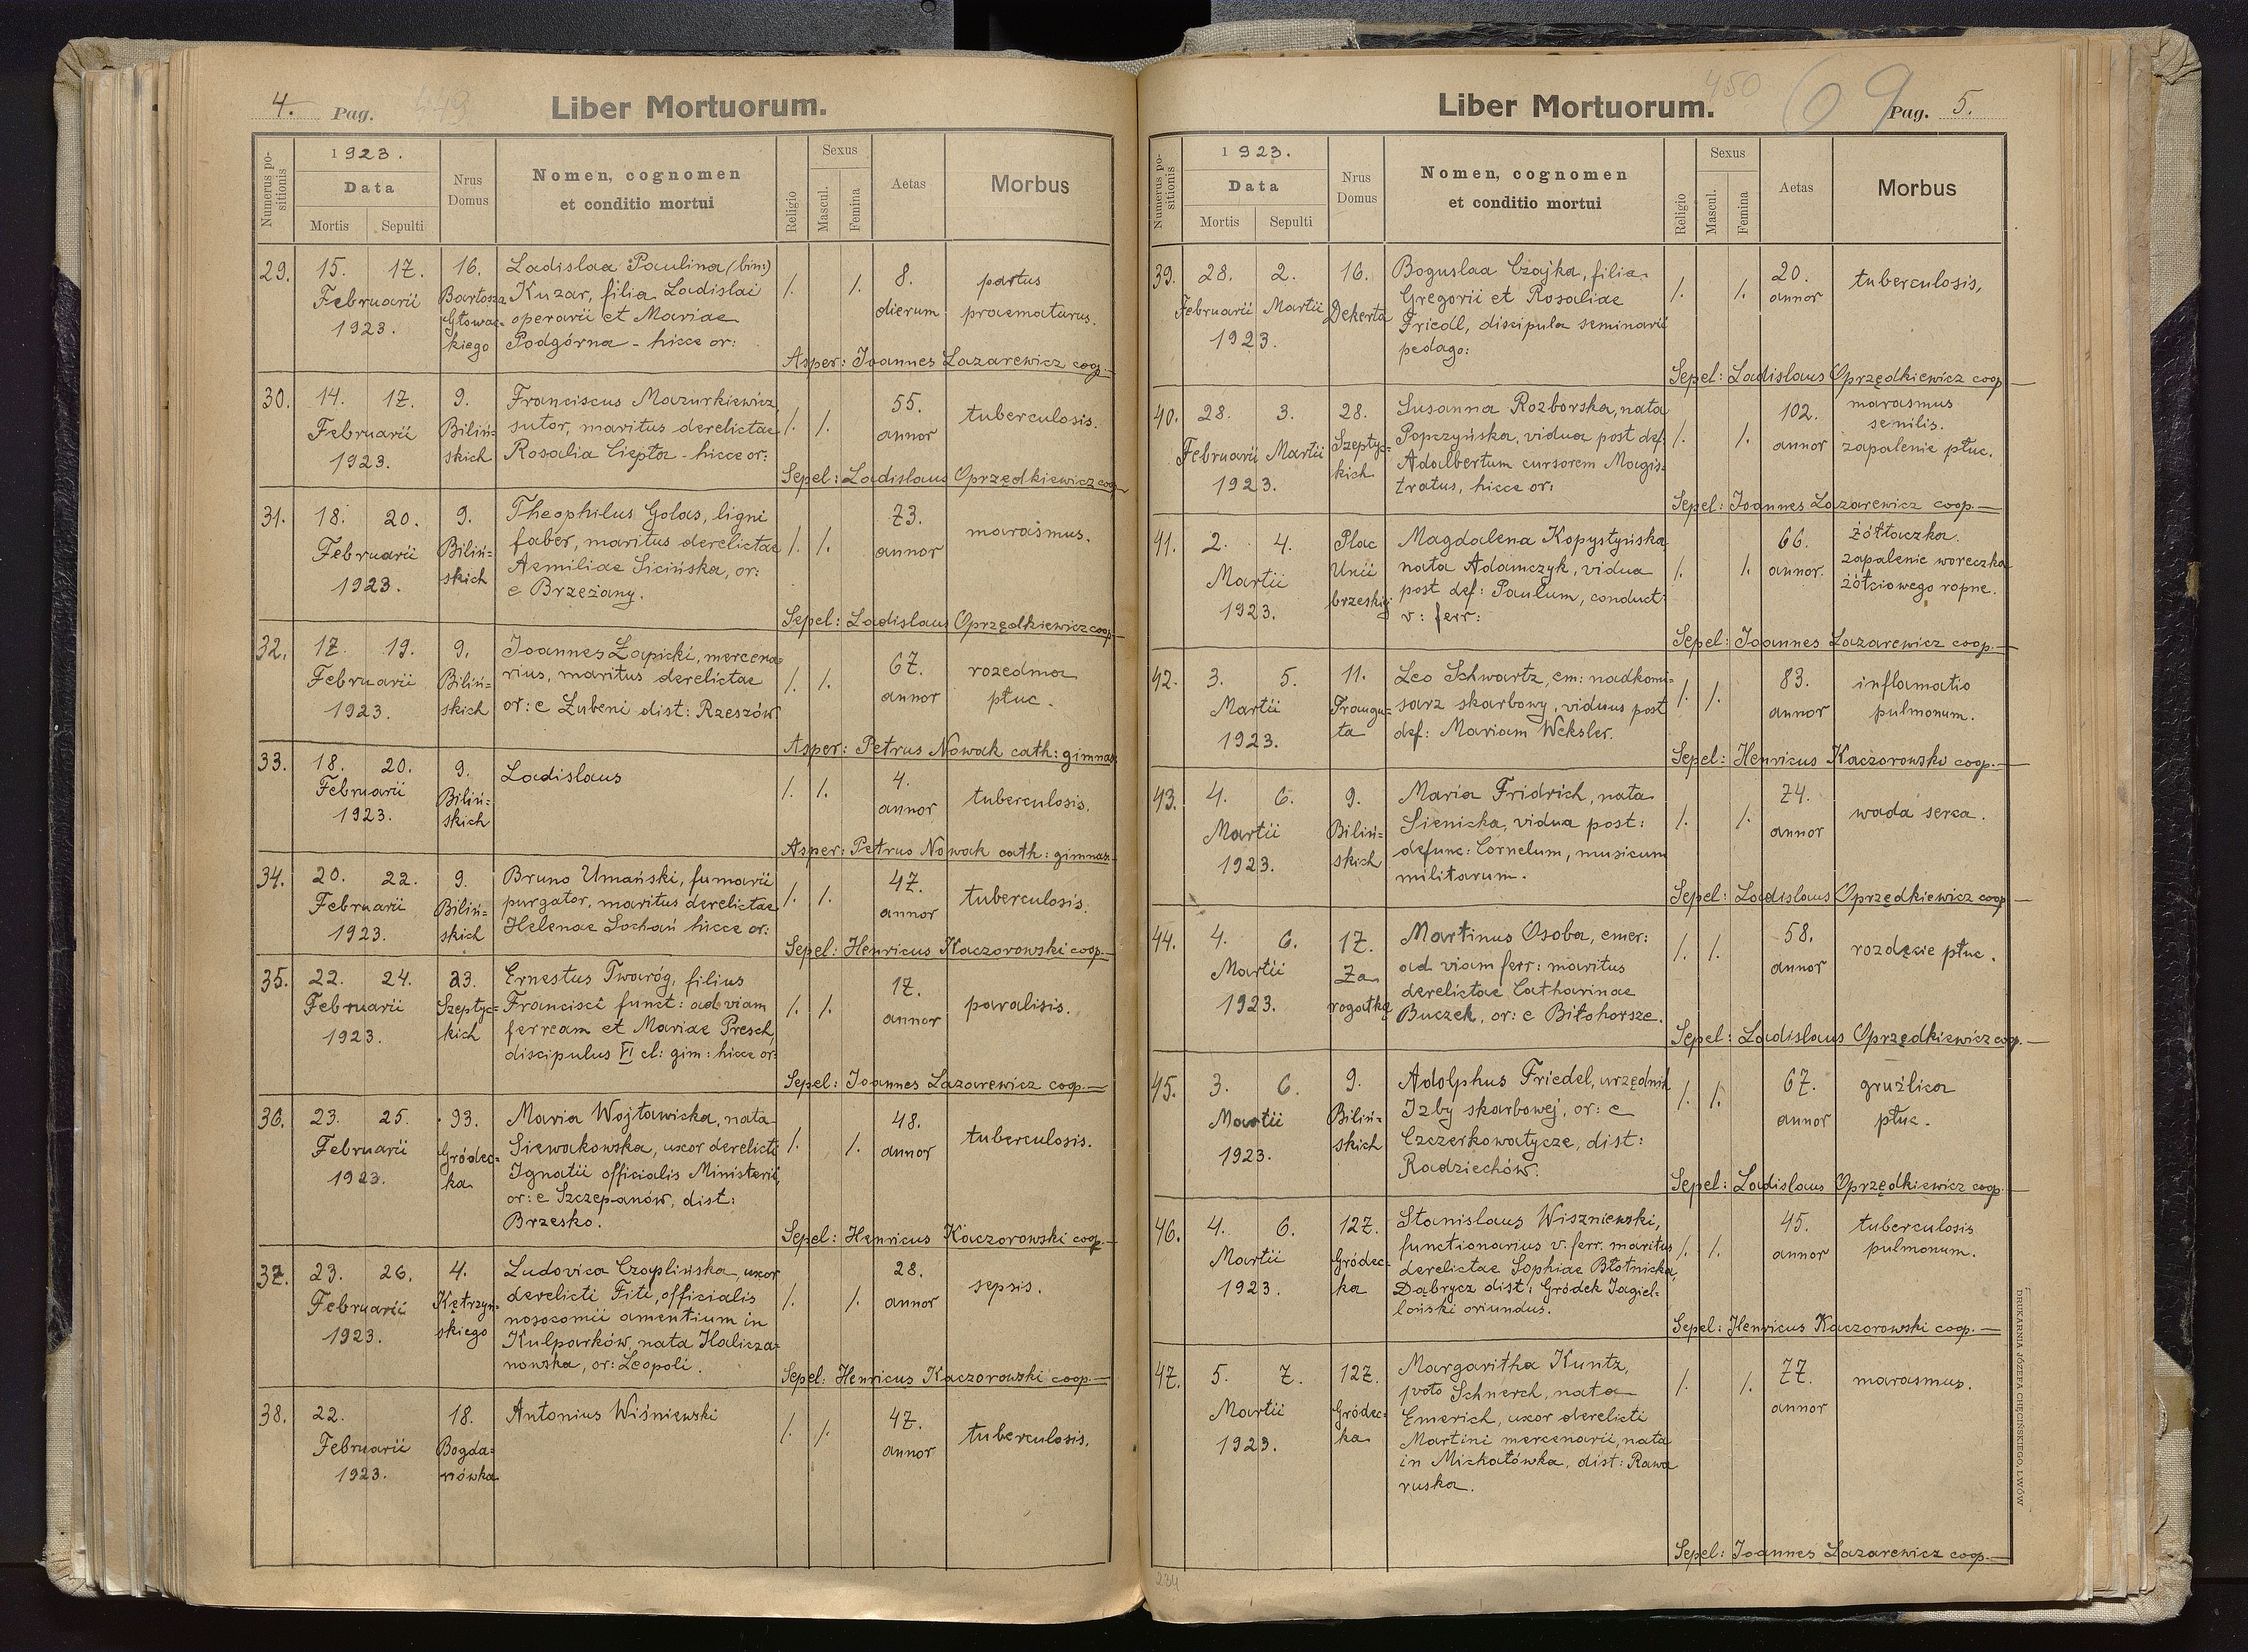 4. Pag. 449
Liber Mortuorum.
Numerus positionis
1923.
Data
Mortis Sepulti
Nrus Domus
Nomen, cognomen
et conditio mortui
Religio
Sexus
Mascul.
Femina
Aetas
Morbus
29. 15. 17. 16. Ladislaa Paulina (bin:) 8. partus
Februarii Bartosza Kuzar, filia Ladislai /. /. dierum praematurus.
1923. Głowac= operarii et Mariae
kiego Podgórna - hicce or:
Asper: Joannes Lazarewicz coop.
30. 14. 17. 9. Franciscus Mazurkiewicz, 55. tuberculosis.
Februarii Biliń= sutor, maritus derelictae /. /. annor
1923. skich Rosalia Ciepła - hicce or:
Sepel: Ladislaus Oprzędkiewicz coop
31. 18. 20. 9. Theophilus Golas, ligni 73. marasmus.
Februarii Biliń= faber, maritus derelictae /. /. annor
1923. skich Aemiliae Sicińska, or:
e Brzeżany.
Sepel: Ladislaus Oprzędkiewicz coop
32. 17. 19. 9. Joannes Łapicki, mercena= 67. rozedma
Februarii Biliń= rius, maritus derelictae /. /. annor płuc.
1923. skich or: e Lubeni dist: Rzeszów
Asper: Petrus Nowak cath: gimnas
33. 18. 20. 9. Ladislaus /. /. 4. tuberculosis.
Februarii Biliń= annor
1923. skich
Asper: Petrus Nowak cath: gimnas
34. 20. 22. 9. Bruno Umański, fumarii 47. tuberculosis.
Februarii Biliń= purgator, maritus derelictae /. /. annor
1923. skich Helenae Sochań hicce or:
Sepel: Henricus Kaczorowski coop.
35. 22. 24. 23. Ernestus Twaróg, filius 17. paralisis.
Februarii Szeptyc= Francisci funct: ad viam /. /. annor
1923. kich ferream et Mariae Presch,
discipulus VI cl: gim: hicce or:
Sepel: Joannes Lazarewicz coop.
36. 23. 25. 93. Maria Wojtawicka, nata 48. tuberculosis.
Februarii Gródec= Siewakowska, uxor derelicti /. /. annor
1923. ka Ignatii officialis Ministerii,
or: e Szczepanów, dist:
Brzesko.
Sepel: Henricus Kaczorowski coop.
37. 23. 26. 4. Ludovica Czaplińska, uxor 28. sepsis.
Februarii Kętrzyń= derelicti Titi, officialis /. /. annor
1923. skiego nosocomii amentium in
Kulparków, nata Halicza=
nowska, or: Leopoli.
Sepel: Henricus Kaczorowski coop.
38. 22. 18. Antonius Wiśniewski /. /. 47. tuberculosis.
Februarii Bogda= annor
1923. nówka
450
69
Liber Mortuorum. Pag. 5.
Numerus positionis
1923.
Data
Mortis Sepulti
Nrus Domus
Nomen, cognomen
et conditio mortui
Religio
Sexus
Mascul.
Femina
Aetas
Morbus
39. 28. 2. 16. Boguslaa Czajka, filia 20. tuberculosis,
Februarii Martii Dekerta Gregorii et Rosaliae /. /. annor
1923. Friedl, discipula seminarii
pedago:
Sepel: Ladislaus Oprzędkiewicz coop
40. 28. 3. 28. Susanna Rozborska, nata 102. marasmus
senilis.
Februarii Martii Szeptyc= Popczyńska, vidua post def. /. /. annor zapalenie płuc.
1923. kich Adalbertum cursorem Magis=
tratus, hicce or:
Sepel: Joannes Lazarewicz coop.
41. 2. 4. Plac Magdalena Kopystyńska 66. żółtaczka.
Martii Unii nata Adamczyk, vidua /. /. annor. zapalenie woreczka
1923. brzeskiej post def: Paulum, conduct: żółciowego ropne.
v: ferr:
Sepel: Joannes Lazarewicz coop.
42. 3. 5. 11. Leo Schwartz, em: nadkomi= 83. inflamatio
Martii Traugu= sarz skarbowy, viduus post /. /. annor pulmonum.
1923. ta def: Mariam Weksler.
Sepel: Henricus Kaczorowski coop.
43. 4. 6. 9. Maria Fridrich, nata 74. wada serca.
Martii Biliń= Sienicka, vidua post: /. /. annor
1923. skich defunc: Cornelum, musicum
militarum.
Sepel: Ladislaus Oprzędkiewicz coop
44. 4. 6. 17. Martinus Osoba, emer: /. /. 58. rozdęcie płuc.
Martii Za ad viam ferr: maritus annor
1923. rogatką derelictae Catharinae
Buczek, or: e Biłohorsze.
Sepel: Ladislaus Oprzędkiewicz coop.
45. 3. 6. 9. Adolphus Friedel, urzędnik 67. gruźlica
Martii Biliń= Izby skarbowej, or: e /. /. annor płuc.
1923. skich Czczerkowatycze, dist:
Radziechów.
Sepel: Ladislaus Oprzędkiewicz coop.
46. 4. 6. 127. Stanislaus Wiszniewski, 45. tuberculosis
Martii Gródec= functionarius v. ferr. maritus /. /. annor pulmonum.
1923. ka derelictae Sophiae Błotnicka,
Dąbrycz dist: Gródek Jagiel=
loński oriundus.
Sepel: Henricus Kaczorowski coop.
47. 5. 7. 127. Margaritha Kuntz, 77. marasmus.
Martii Gródec= 1voto Schnerch, nata /. /. annor
1923. ka Emerich, uxor derelicti
Martini mercenarii, nata
in Michałówka, dist: Rawa
ruska.
Sepel: Joannes Lazarewicz coop.
234
DRUKARNIA JÓZEFA CHĘCIŃSKIEGO, LWÓW